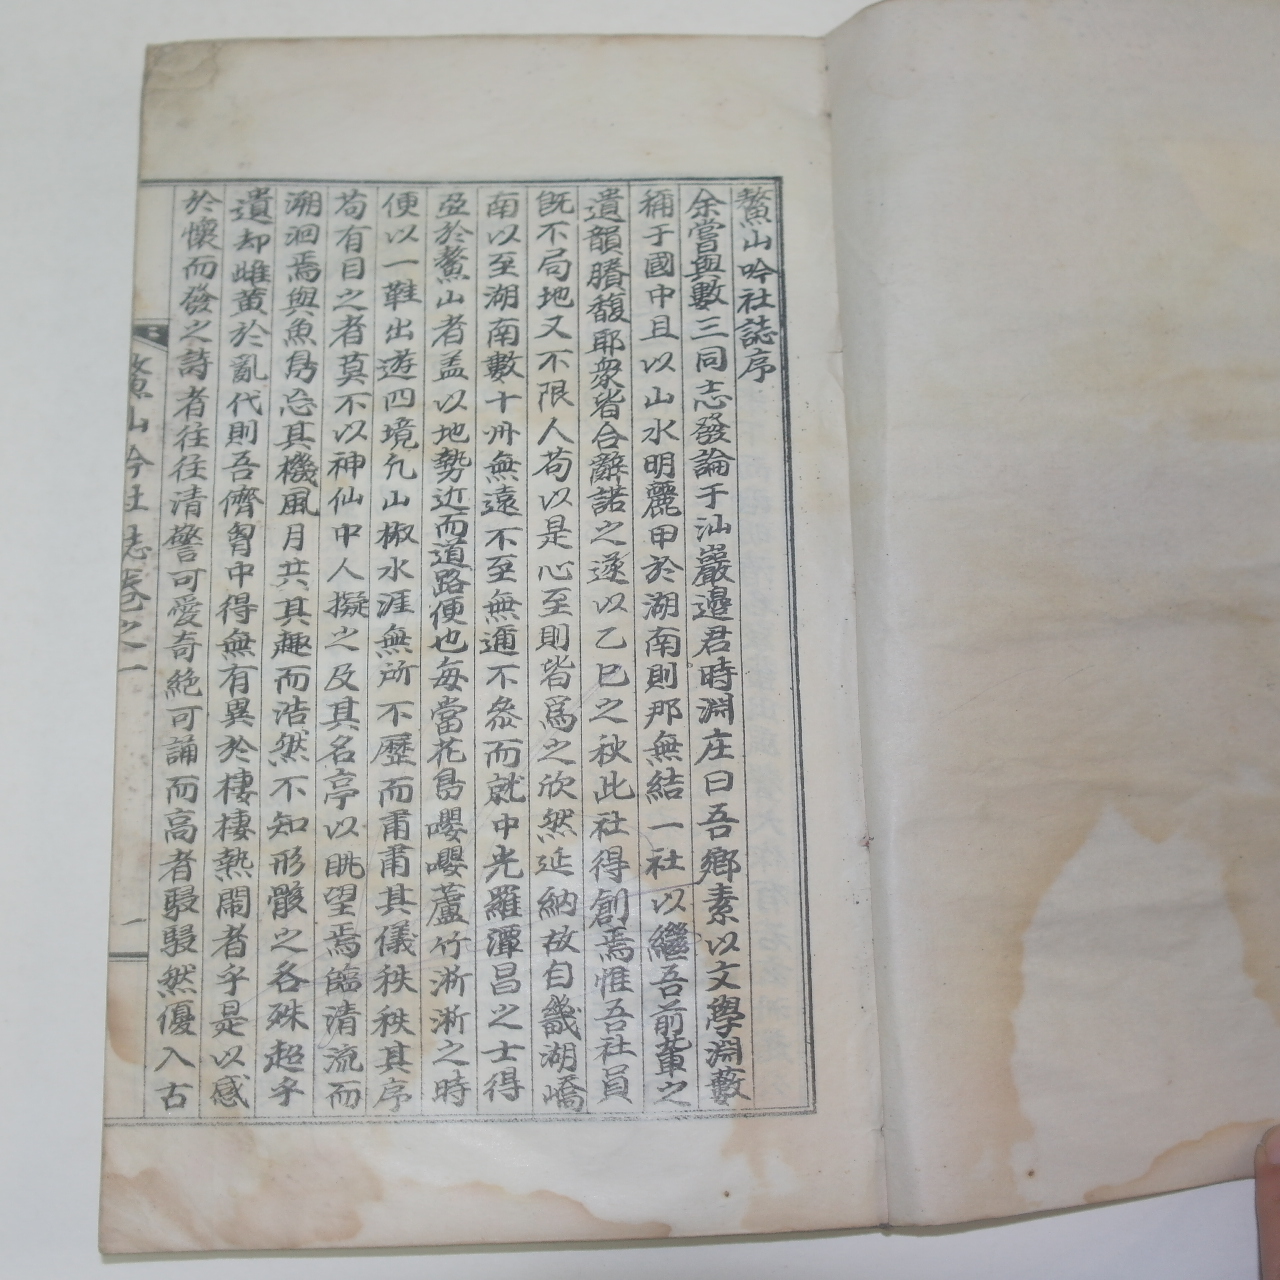 鰲山吟社誌序
余嘗與數三同志發論于汕巖邉君時淵庄曰吾鄉素以文學淵藪
稱于國中且以山水明麗甲於湖南則那無結一社以繼吾前輩之
遺韻賸馥耶衆皆合辭諾之遂以乙巳之秋此社得創焉惟吾社員
旣不局地又不限人苟以是心至則皆爲之欣然延納故自畿湖嶠
南以至湖南數十州無遠不至無邇不叅而就中光羅潭昌之士得
盈於鰲山者盖以地勢近而道路便也每當花鳥嚶嚶蘆竹淅淅之時
便以一鞋出遊四境凢山椒水涯無所不歷而肅肅其儀秩秩其序
苟有目之者莫不以神仙中人擬之及其名亭以眺望焉臨清流而
溯洄焉與魚鳥忘其機風月共其趣而浩然不知形骸之各殊超乎
遺却雌黄於亂代則吾儕胷中得無有異於棲棲熱鬧者乎是以感
於懷而發之詩者往往清警可愛奇絶可誦而高者駸駸然優入古
鰲山吟社誌卷之一
一